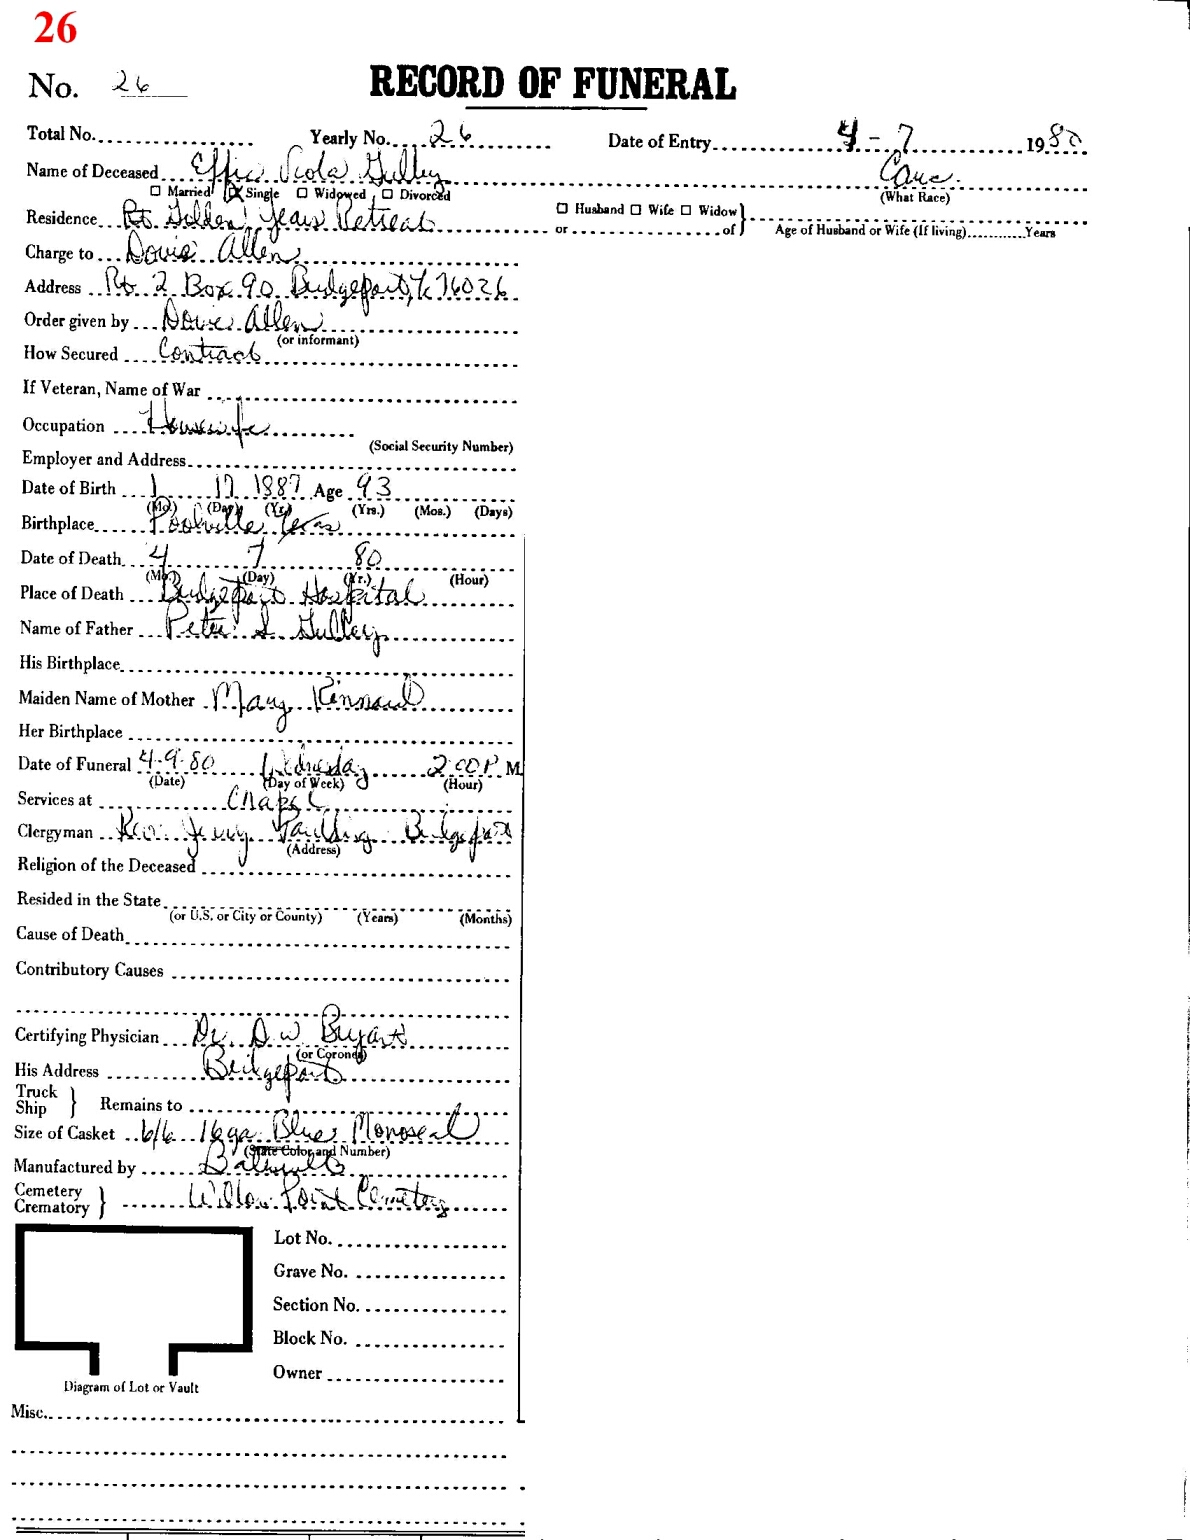 26
No. 26 RECORD OF FUNERAL
Total No. Yearly No. 26 Date of Entry 4-7 1980
Name of Deceased Effie Viola Gulley Cauc.
Married Single Widowed Divorced (What Race)
Residence Rt. Golden Years Retreat Husband Wife Widow
or of Age of Husband or Wife (If living) Years
Charge to Dovie Allen
Address Rt. 2 Box 90 Bridgeport, Tx 76026
Order given by Dovie Allen
(or informant)
How Secured Contract
If Veteran, Name of War
Occupation Housewife
(Social Security Number)
Employer and Address
Date of Birth 1 17 1887 Age 93
(Mo.) (Day) (Yr.) (Yrs.) (Mos.) (Days)
Birthplace Poolville Texas
Date of Death 4 7 80
(Mo.) (Day) (Yr.) (Hour)
Place of Death Bridgeport Hospital
Name of Father Peter S Gulley
His Birthplace
Maiden Name of Mother Mary Kinnard
Her Birthplace
Date of Funeral 4-9-80 Wednesday 2:00 P M.
(Date) (Day of Week) (Hour)
Services at Chapel
Clergyman Rev. Jerry Paulding Bridgeport
(Address)
Religion of the Deceased
Resided in the State
(or U.S. or City or County) (Years) (Months)
Cause of Death
Contributory Causes
Certifying Physician Dr. D.W. Bryant
(or Coroner)
His Address Bridgeport
Truck
Ship } Remains to
Size of Casket 6/6 16ga. Blue Monoseal
(State Color and Number)
Manufactured by
Cemetery
Crematory } Willow Point Cemetery
Lot No.
Grave No.
Section No.
Block No.
Owner
Diagram of Lot or Vault
Misc.